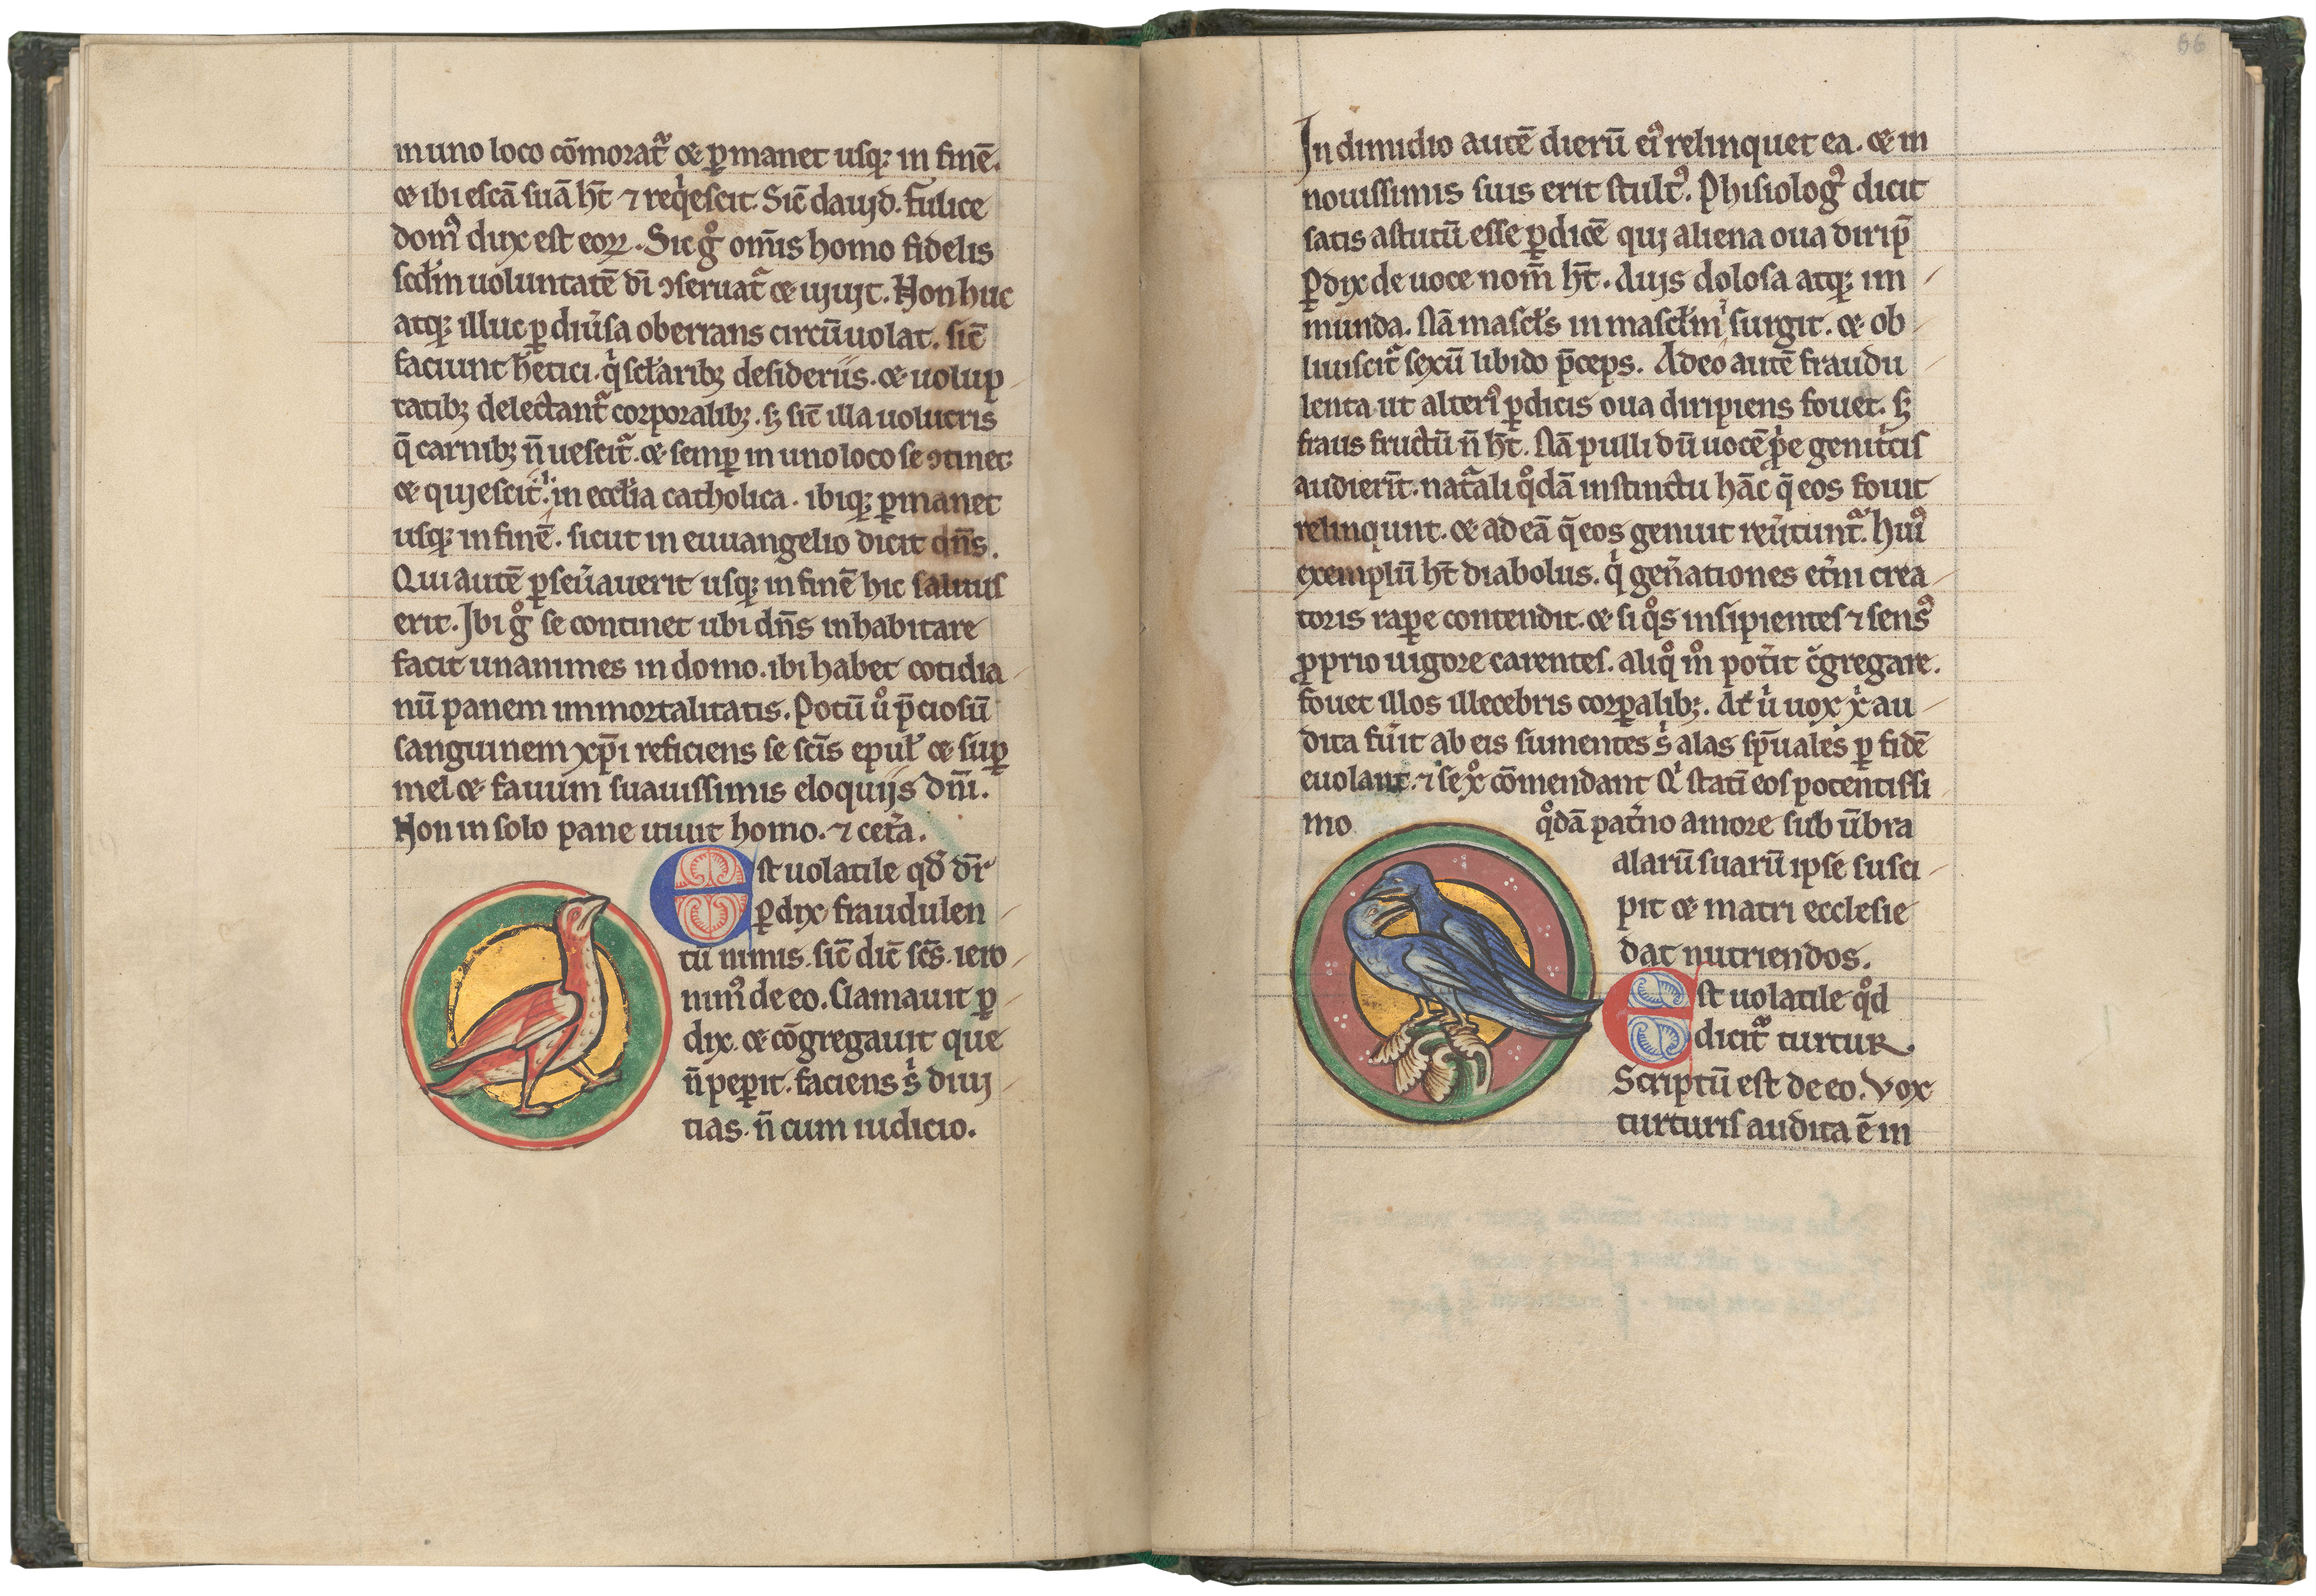 in uno loco cōmorat᷑ ⁊ ꝑmanet usq; in finē.
⁊ ibi escā suā ħt ⁊ reqͥescit. Sic̄ dauid. fulice
dom᷒ dux est eoꝝ. Sic gͦ om̄is homo fidelis
scđm uoluntatē dī ↄseruat᷑ ⁊ uiuit. Non huc
atq; illuc ꝑ diūsa oberrans circūuolat. sic̄
faciunt h̄etici. qͥ scl̄aribꝫ desideriis. ⁊ uolup
tatibꝫ delectant᷑ corporalibꝫ. sꝫ sic̄ illa uolucris
q̄ carnibꝫ n̄ uescit᷑. ⁊ semꝑ in uno loco se ↄtinet
⁊ quiescit. in eccl̄ia catholica. ibiq; ꝑmanet
usq; in finē. sicut in euuangelio dicit dn̄s.
Qui autē ꝑseūauerit usq; in finē hic saluus
erit. Ibi gͦ se continet ubi dn̄s inhabitare
facit unanimes in domo. ibi habet cotidia
nū panem immortalitatis. Potū uͦ p̄ciosū
sanguinem xp̄i reficiens se sc̄is epul̄ ⁊ suꝑ
mel ⁊ fauum suauissimis eloquijs dn̄i.
Non in solo pane uiuit homo. ⁊ cet̄a.
Est uolatile qđ dr̄
ꝑdix fraudulen
tū nimis. sic̄ dic̄ sc̄s. iero
nim᷒ de eo. Clamauit ꝑ
dix. ⁊ cōgregauit que
n̄ peꝑit. faciens sͥ diui
tias. n̄ cum iudicio.
66
In dimidio autē dierū ei᷒ relinquet ea. ⁊ in
nouissimis suis erit stult᷒. Phisiolog᷒ dicit
satis astutū esse ꝑdicē qui aliena oua dirip̄
ꝑdix de uoce nom̄ ħt. Auis dolosa atq; im
munda. Nā mascl̄s in mascl̄m surgit. ⁊ ob
liuiscit᷑ sexū libido p̄ceps. Adeo autē fraudu
lenta ut alteri᷒ ꝑdicis oua diripiens fouet. sꝫ
fraus fructū n̄ ħt. Nā pulli dū uocē pͥe genitͥcis
audierīt. nat᷑ali qͦdā instinctu hāc q̄ eos fouit
relinqunt. ⁊ ad eā q̄ eos genuit reūtunt᷑. hui᷒
exemplū ħt diabolus. qͥ gen̄ationes et̄ni crea
toris raꝑe contendit. ⁊ si qͦs insipientes ⁊ sens᷒
ꝓprio uigore carentes. aliqͦ mͦ pot̄it c̄gregare.
fouet illos illecebris corꝑalibꝫ. At uͥ uox xͥ au
dita fūit ab eis sumentes sͥ alas sp̄uales ꝑ fidē
euolant. ⁊ se xͦ cōmendant Qͥ statī eos potentissi
mo qͦdā pat̄no amore sub ūbra
alarū suarū ipse susci
pit ⁊ matri ecclesie
dat nutriendos.
Est uolatile qͦd
dicit᷑ turtur
Scriptū est de eo. Vox
turturis audita ē in